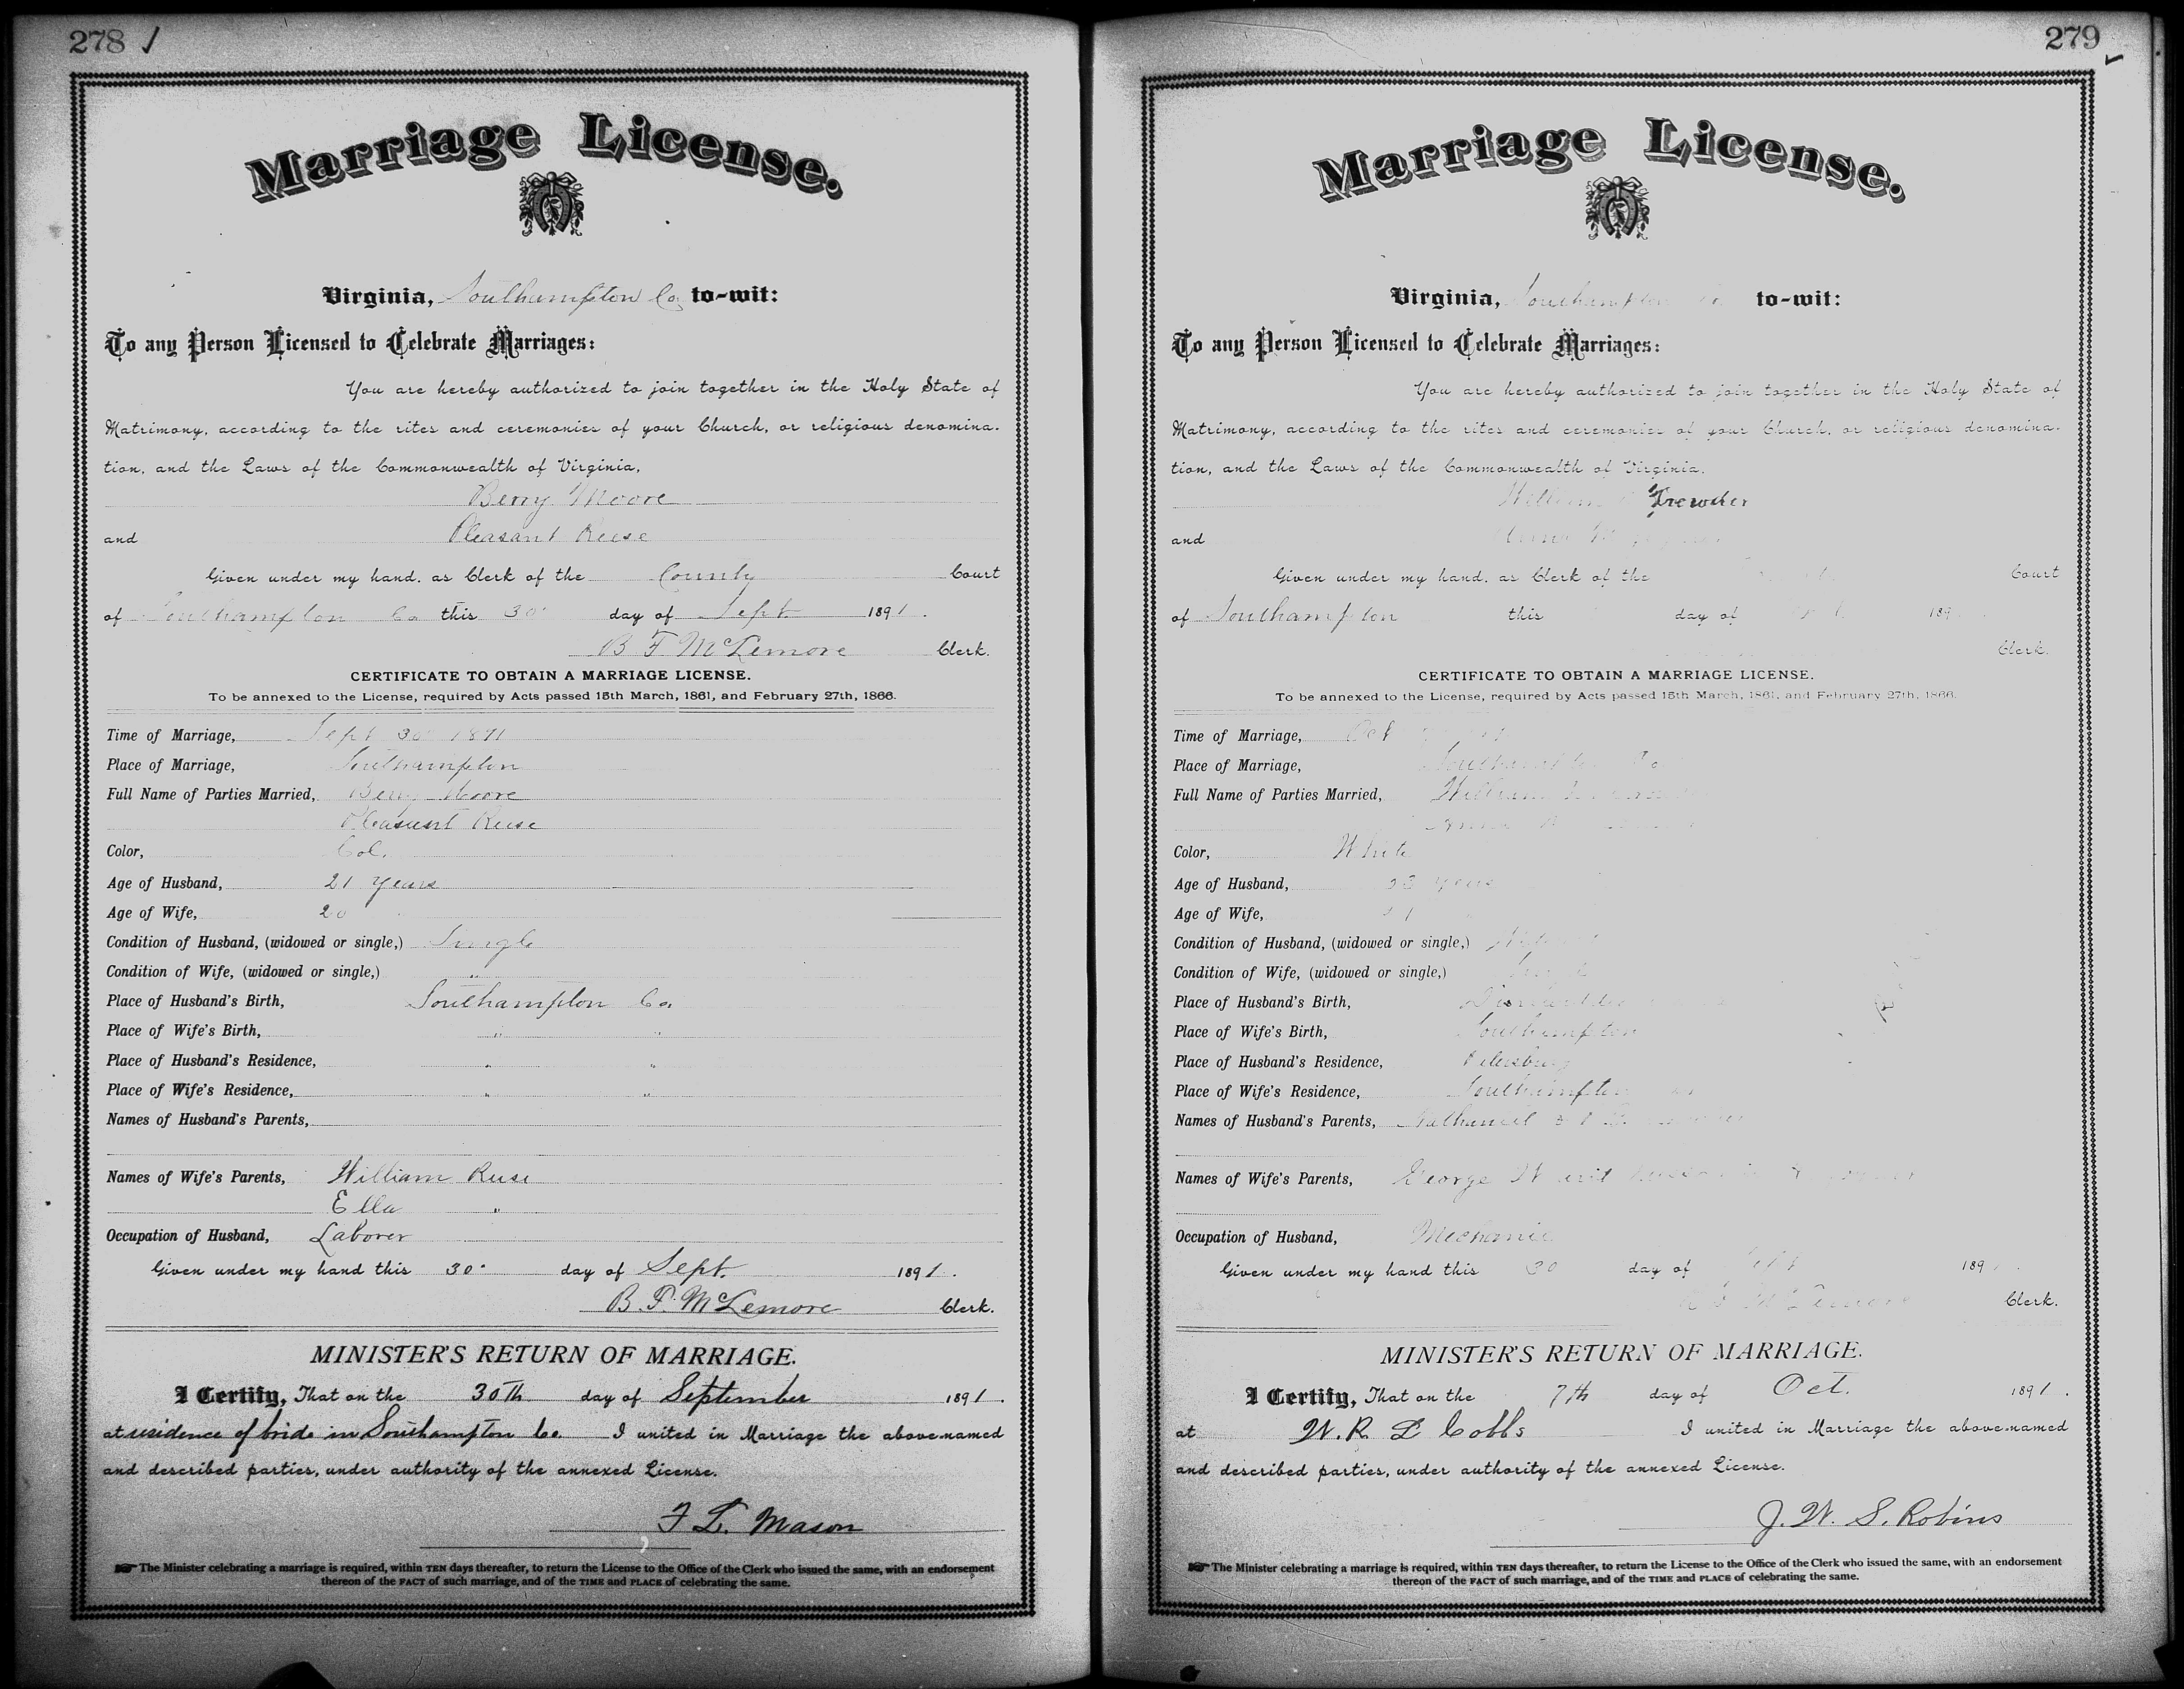 278
Marriage License.
Virginia, Southampton Co. to-wit:
To any Person Licensed to Celebrate Marriages:
You are hereby authorized to join together in the Holy State of
Matrimony, according to the rites and ceremonies of your Church, or religious denomina-
tion, and the Laws of the Commonwealth of Virginia,
Berry Moore
and Pleasant Reese
Given under my hand, as Clerk of the County Court
of Southampton Co this 30 day of Sept 1891.
B F McLemore Clerk.
CERTIFICATE TO OBTAIN A MARRIAGE LICENSE.
To be annexed to the License, required by Acts passed 15th March, 1861, and February 27th, 1866.
Time of Marriage, Sept 30 1891
Place of Marriage, Southampton
Full Name of Parties Married, Berry Moore
Pleasant Reese
Color, Col.
Age of Husband, 21 Years
Age of Wife, 20
Condition of Husband, (widowed or single,) Single
Condition of Wife, (widowed or single,) "
Place of Husband's Birth, Southampton Co.
Place of Wife's Birth, " "
Place of Husband's Residence, " "
Place of Wife's Residence, " "
Names of Husband's Parents,
Names of Wife's Parents, William Reese
Ella "
Occupation of Husband, Laborer
Given under my hand this 30 day of Sept. 1891.
B. F. McLemore Clerk.
MINISTER'S RETURN OF MARRIAGE.
I Certify, That on the 30th day of September 1891.
at residence of bride in Southampton Co. I united in Marriage the above-named
and described parties, under authority of the annexed License.
F L. Mason
The Minister celebrating a marriage is required, within TEN days thereafter, to return the License to the Office of the Clerk who issued the same, with an endorsement
thereon of the FACT of such marriage, and of the TIME and PLACE of celebrating the same.
279
Marriage License.
Virginia, Southampton Co to-wit:
To any Person Licensed to Celebrate Marriages:
You are hereby authorized to join together in the Holy State of
Matrimony, according to the rites and ceremonies of your Church, or religious denomina-
tion, and the Laws of the Commonwealth of Virginia,
William
and
Given under my hand, as Clerk of the Court
of Southampton this day of 189
Clerk.
CERTIFICATE TO OBTAIN A MARRIAGE LICENSE.
To be annexed to the License, required by Acts passed 15th March, 1861, and February 27th, 1866.
Time of Marriage, Oct
Place of Marriage, Southampton Co
Full Name of Parties Married, William
Color, White
Age of Husband, years
Age of Wife,
Condition of Husband, (widowed or single,)
Condition of Wife, (widowed or single,) Single
Place of Husband's Birth,
Place of Wife's Birth, Southampton
Place of Husband's Residence, Petersburg
Place of Wife's Residence, Southampton
Names of Husband's Parents, Nathaniel &
Names of Wife's Parents, George W and
Occupation of Husband, Mechanic
Given under my hand this 30 day of Sept 189
B F McLemore Clerk.
MINISTER'S RETURN OF MARRIAGE.
I Certify, That on the 7th day of Oct. 1891.
at W. R. L Cobbs I united in Marriage the above-named
and described parties, under authority of the annexed License.
J. W. S. Robins
The Minister celebrating a marriage is required, within TEN days thereafter, to return the License to the Office of the Clerk who issued the same, with an endorsement
thereon of the FACT of such marriage, and of the TIME and PLACE of celebrating the same.